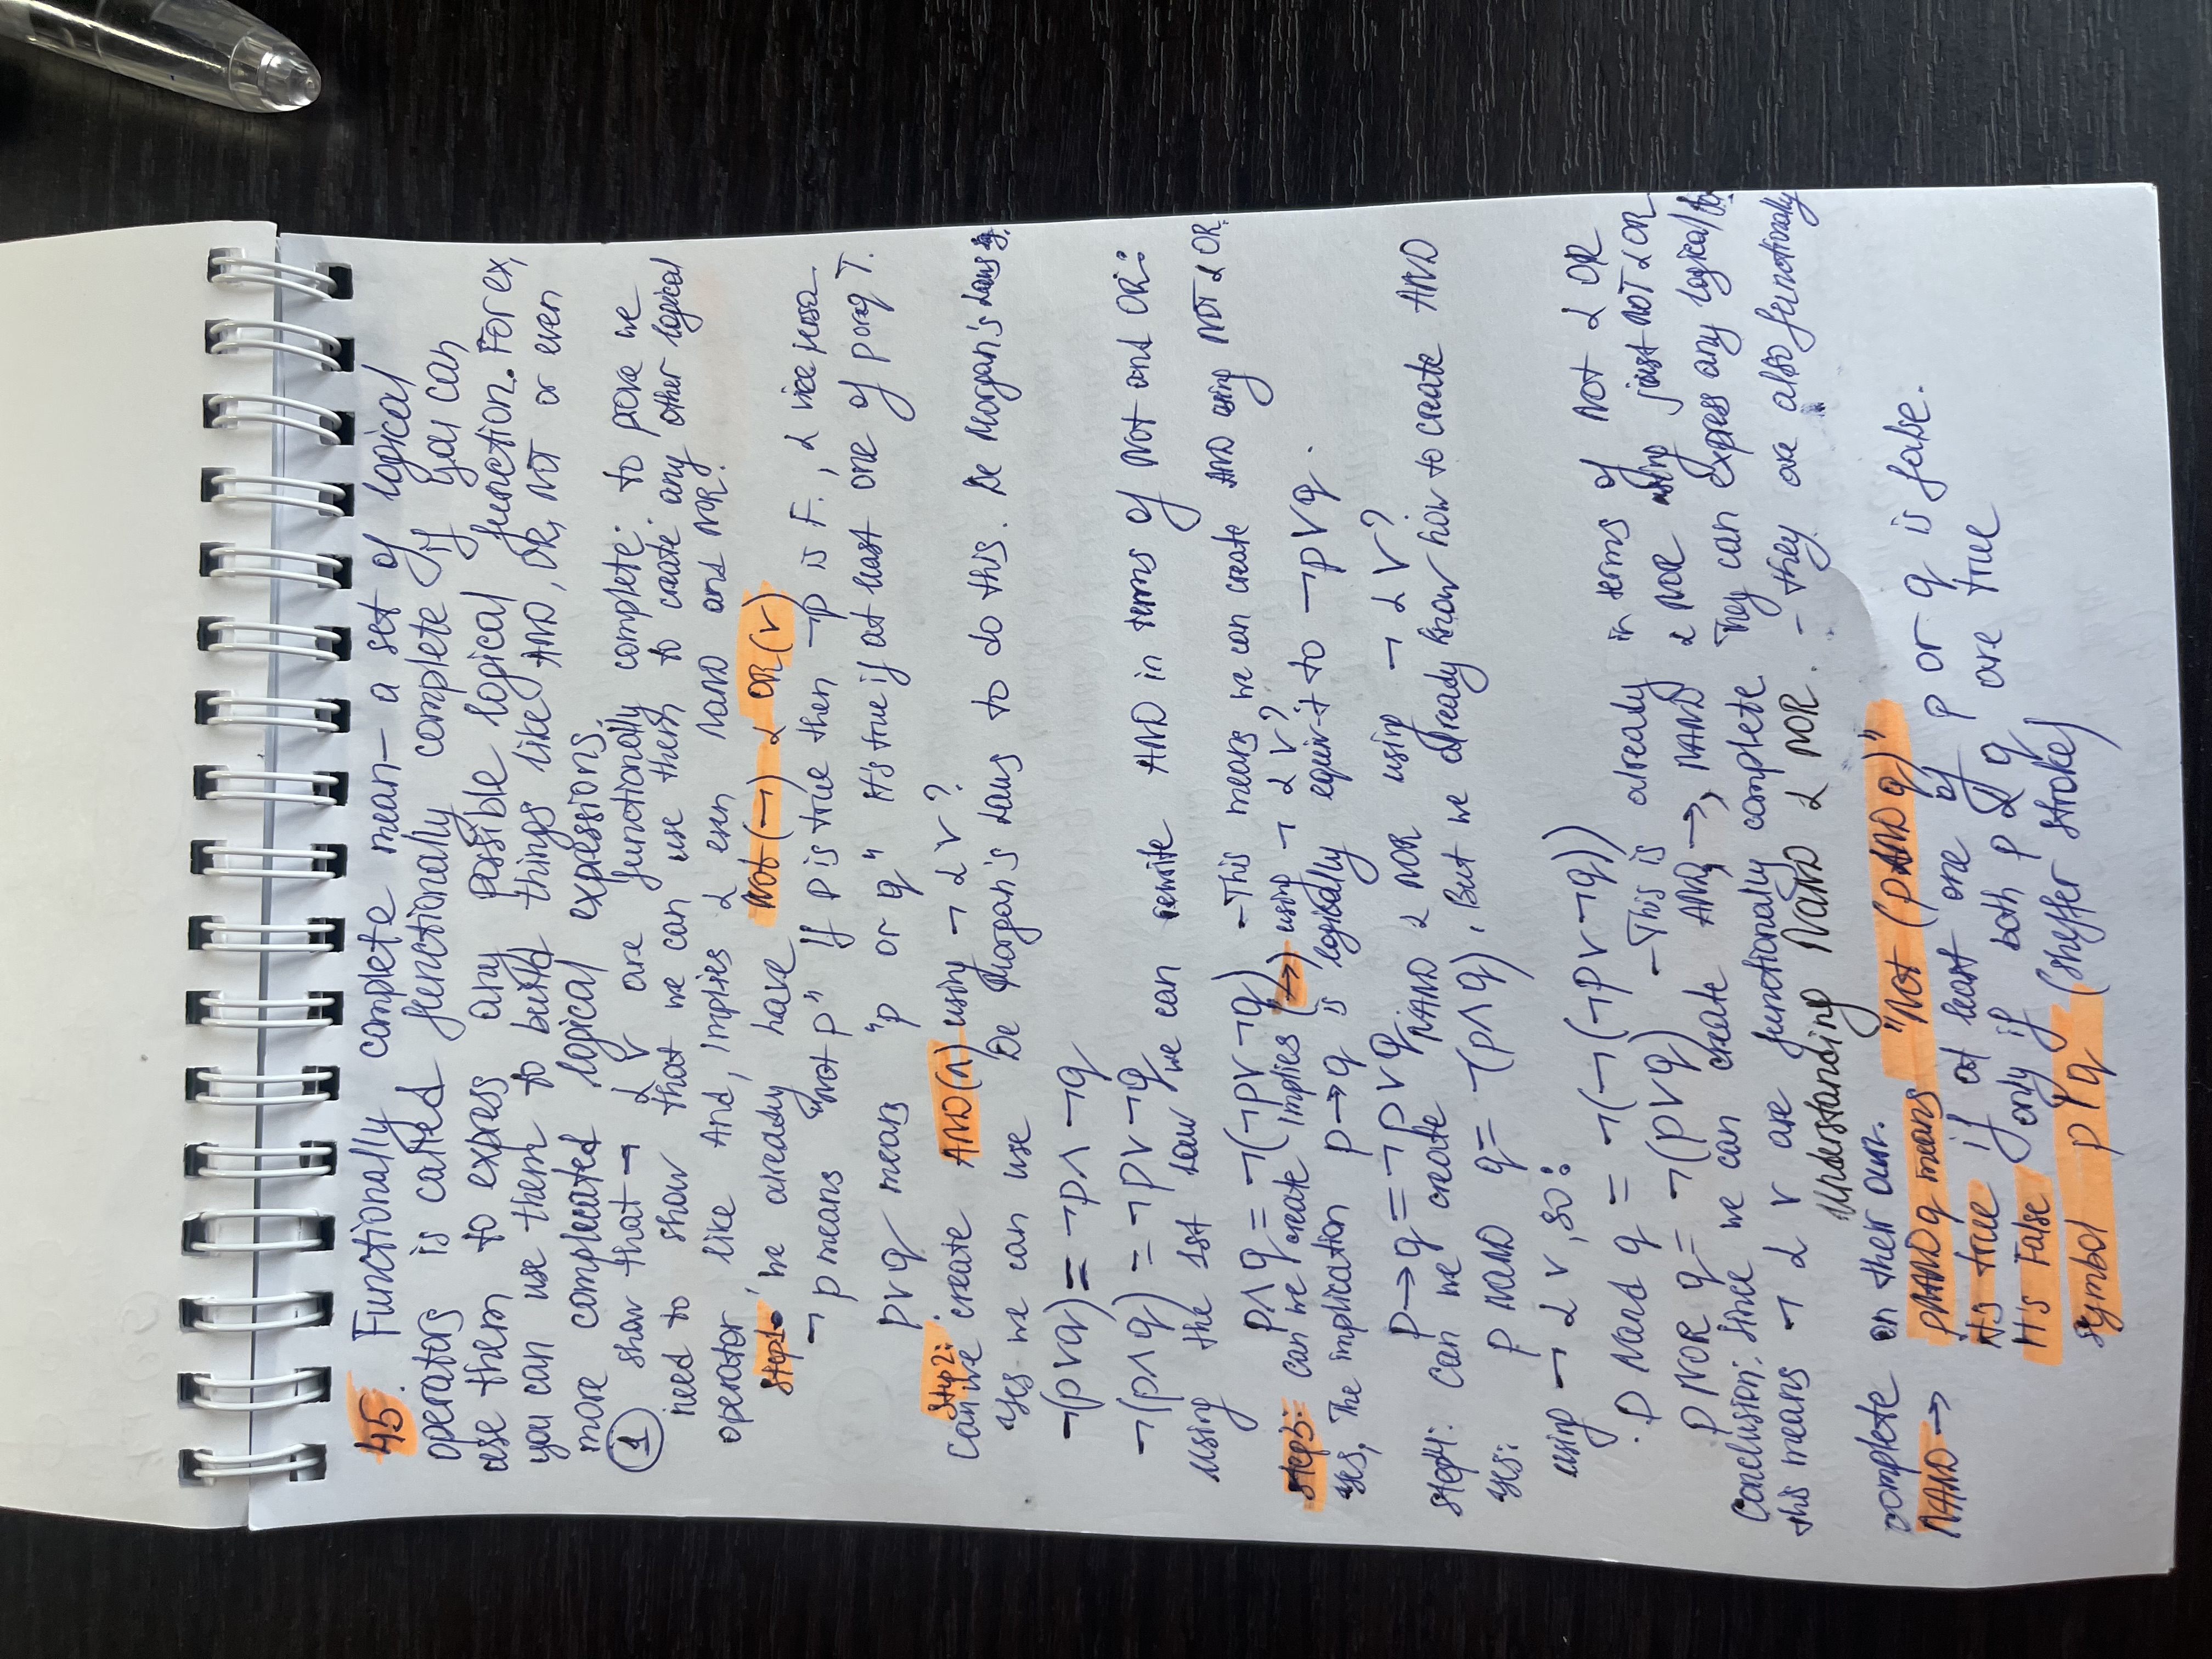 45. Functionally complete mean – a set of logical
operators is called functionally complete if you can
use them to express any possible logical function. For ex,
you can use them to build things like AND, OR, NOT or even
more complecated logical expressions.
① show that ¬ & ∨ are functionally complete: to prove we
need to show that we can use them to create any other logical
operator, like And, Implies & even NAND and NOR.
Step1 • We already have Not (¬) & OR (∨)
¬p means "not p" If p is true then ¬p is F., & vice versa
p∨q means "p or q" It's true if at least one of p or q T.
Step2:
Can we create AND (∧) using ¬ & ∨?
Yes we can use De Morgan's Laws to do this. De Morgan's Laws
¬(p∨q) = ¬p ∧ ¬q
¬(p∧q) = ¬p ∨ ¬q
Using the 1st Law we can rewrite AND in terms of Not and OR:
p∧q = ¬(¬p∨¬q) – This means we can create AND using NOT & OR.
Step3: Can we create Implies (→) using ¬ & ∨?
Yes, The implication p→q is logically equiv-t to ¬p∨q.
p→q = ¬p∨q.
Step4: Can we create NAND & NOR using ¬ & ∨?
Yes: p NAND q = ¬(p∧q), But we already know how to create AND
using ¬ & ∨, so:
. p Nand q = ¬(¬(¬p∨¬q))
p NOR q = ¬(p∨q) – This is already in terms of Not & OR
Conclusion: Since we can create AND, →, NAND & NOR using just NOT & OR
this means ¬ & ∨ are functionally complete. They can express any logical
Understanding NAND & NOR. – they are also functionally
complete on their own.
NAND → pNANDq means "Not (pANDq)"
It's true if at least one of p or q is false.
It's False only if both p & q are true
symbol p | q (sheffer stroke)